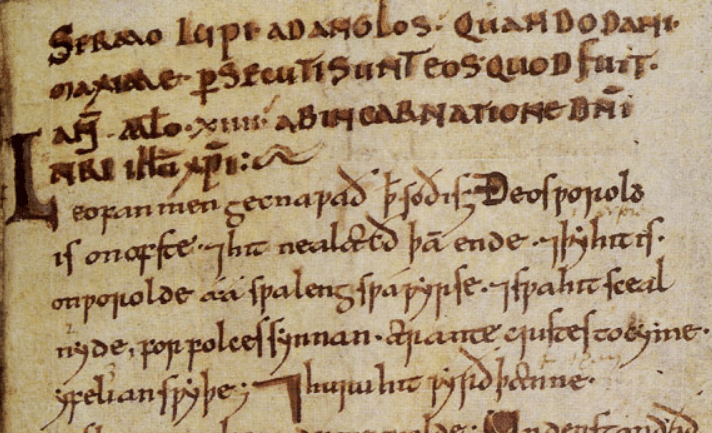 SERMO LUPI· AD ANGLOS· QUANDO DANI·
MAXIME· PSECUTI SUNT EOS· QUOD FUIT·
AN̄· MIL̄LO· XIIII· AB INCARNATIONE DN̄I
NRI IH̄U XP̄I:
Leofan men gecnaƿað ꝥ soð is; Ðeos ƿorold
is on ofste· ⁊ hit nealæcð þā ende· ⁊ þy hit is·
on ƿorolde aá sƿa leng sƿa ƿyrse· ⁊ sƿa hit sceal
nyde, for folces synnan· ær antecristes tocyme·
yfelian sƿyþe; ⁊ huru hit ƿyrð þænne·